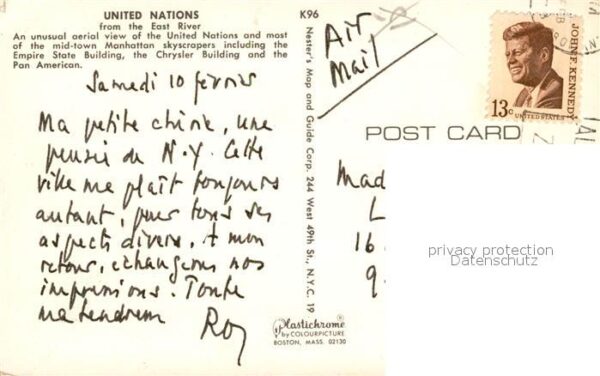 UNITED NATIONS
from the East River
An unusual aerial view of the United Nations and most
of the mid-town Manhattan skyscrapers including the
Empire State Building, the Chrysler Building and the
Pan American.
K96
Samedi 10 février
Ma petite chérie, une
pensée de N.Y. Cette
ville me plaît toujours
autant, pour tous ses
aspects divers. A mon
retour, échangerons nos
impressions. Toute
ma tendresse
Roy
Nester's Map and Guide Corp. 244 West 49th St., N.Y.C. 19
Plastichrome®
by COLOURPICTURE
BOSTON, MASS. 02130
Air
Mail
POST CARD
JOHN F. KENNEDY
13c
UNITED STATES
Mad
L
16
9
privacy protection
Datenschutz